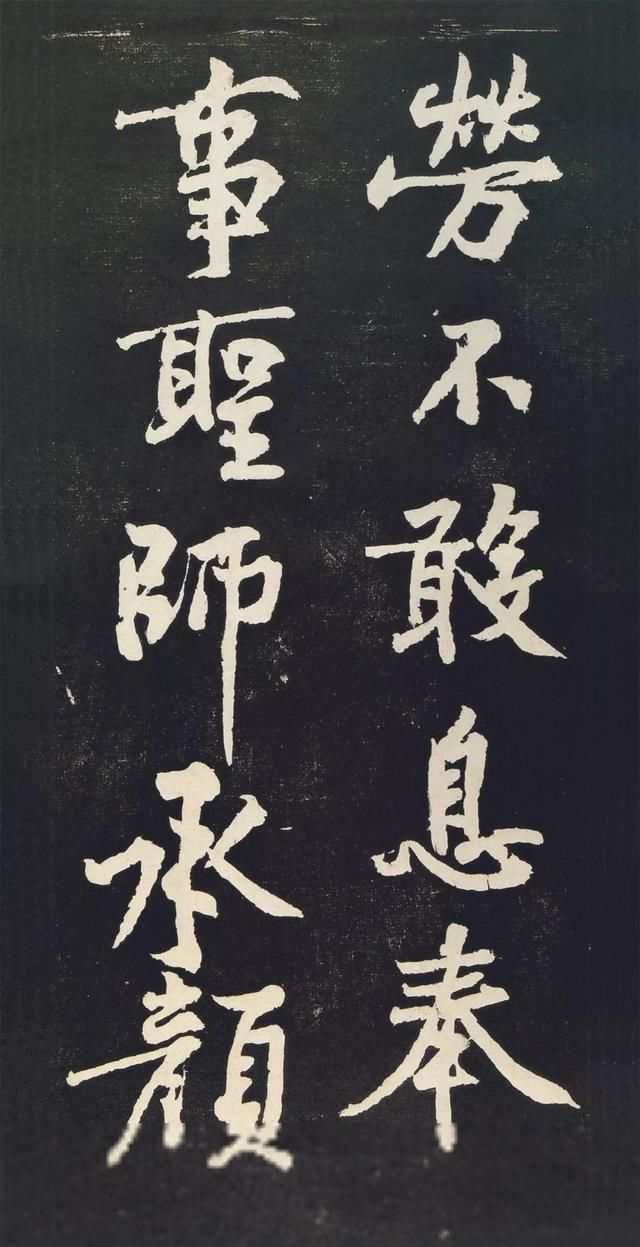 勞不敢息奉
事聖師承顏